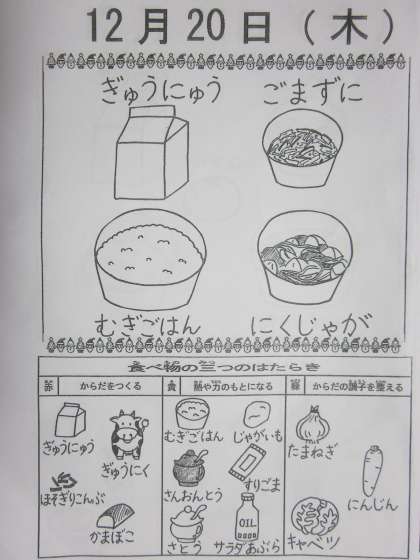 12月20日(木)
ぎゅうにゅう ごまずに
むぎごはん にくじゃが
食べ物の三つのはたらき
赤 からだをつくる 黄 熱や力のもとになる 緑 からだの調子を整える
ぎゅうにゅう ぎゅうにく むぎごはん じゃがいも たまねぎ
ほそぎりこんぶ さんおんとう すりごま にんじん
かまぼこ さとう OIL サラダあぶら キャベツ